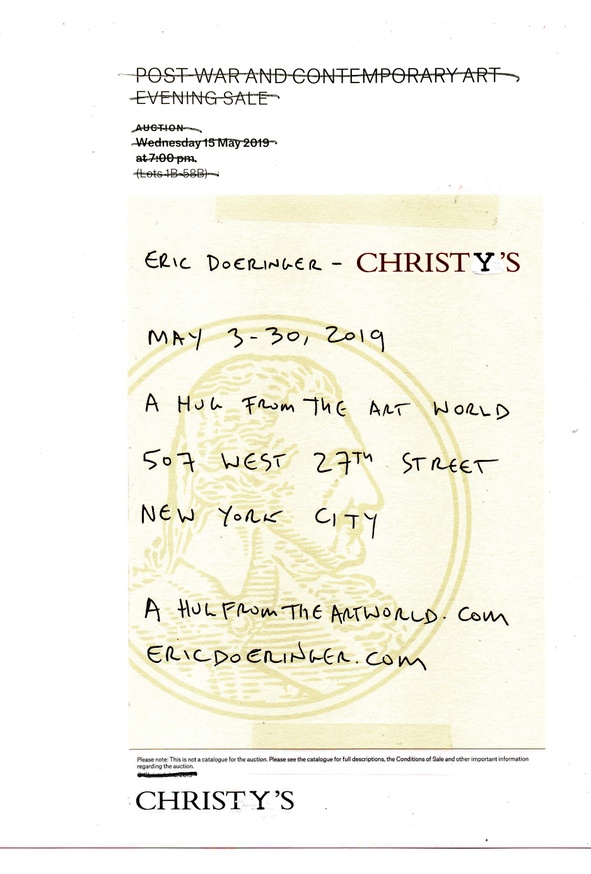 POST-WAR AND CONTEMPORARY ART
EVENING SALE
AUCTION
Wednesday 15 May 2019
at 7:00 pm.
(Lots 1B-58B)
ERIC DOERINGER - CHRISTY'S
MAY 3-30, 2019
A HUG FROM THE ART WORLD
507 WEST 27TH STREET
NEW YORK CITY
A HUGFROMTHEARTWORLD.COM
ERICDOERINGER.COM
Please note: This is not a catalogue for the auction. Please see the catalogue for full descriptions, the Conditions of Sale and other important information
regarding the auction.
CHRISTY'S